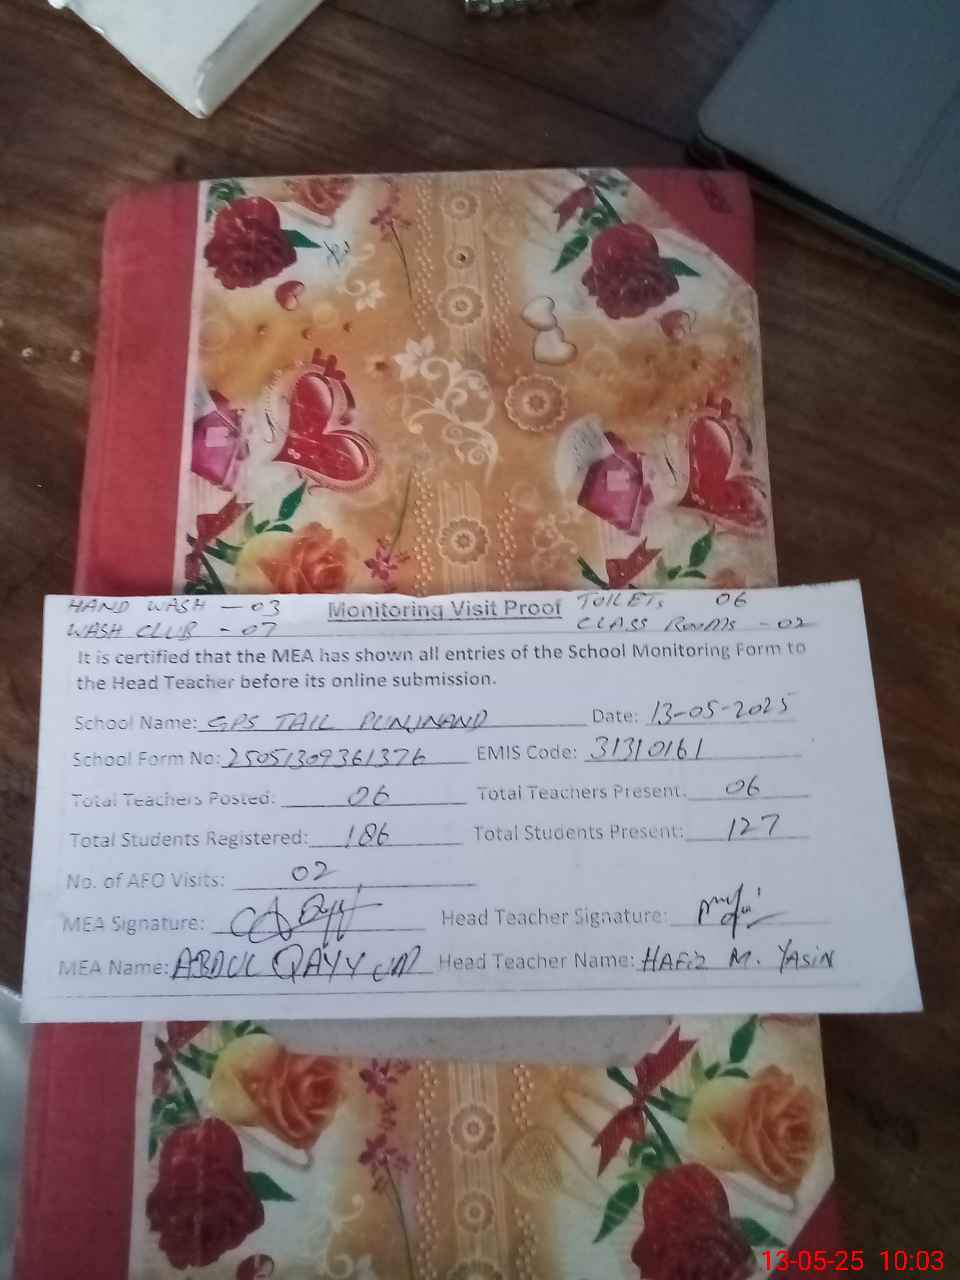 HAND WASH - 03 Monitoring Visit Proof TOILETS 06
WASH CLUB - 07 CLASS ROOMS - 02
It is certified that the MEA has shown all entries of the School Monitoring Form to
the Head Teacher before its online submission.
School Name: GPS TAIL PUNJNAND Date: 13-05-2025
School Form No: 25051309361376 EMIS Code: 31310161
Total Teachers Posted: 06 Total Teachers Present: 06
Total Students Registered: 186 Total Students Present: 127
No. of AEO Visits: 02
MEA Signature: Head Teacher Signature:
MEA Name: ABDUL QAYYUM Head Teacher Name: HAFIZ M. YASIN
13-05-25 10:03